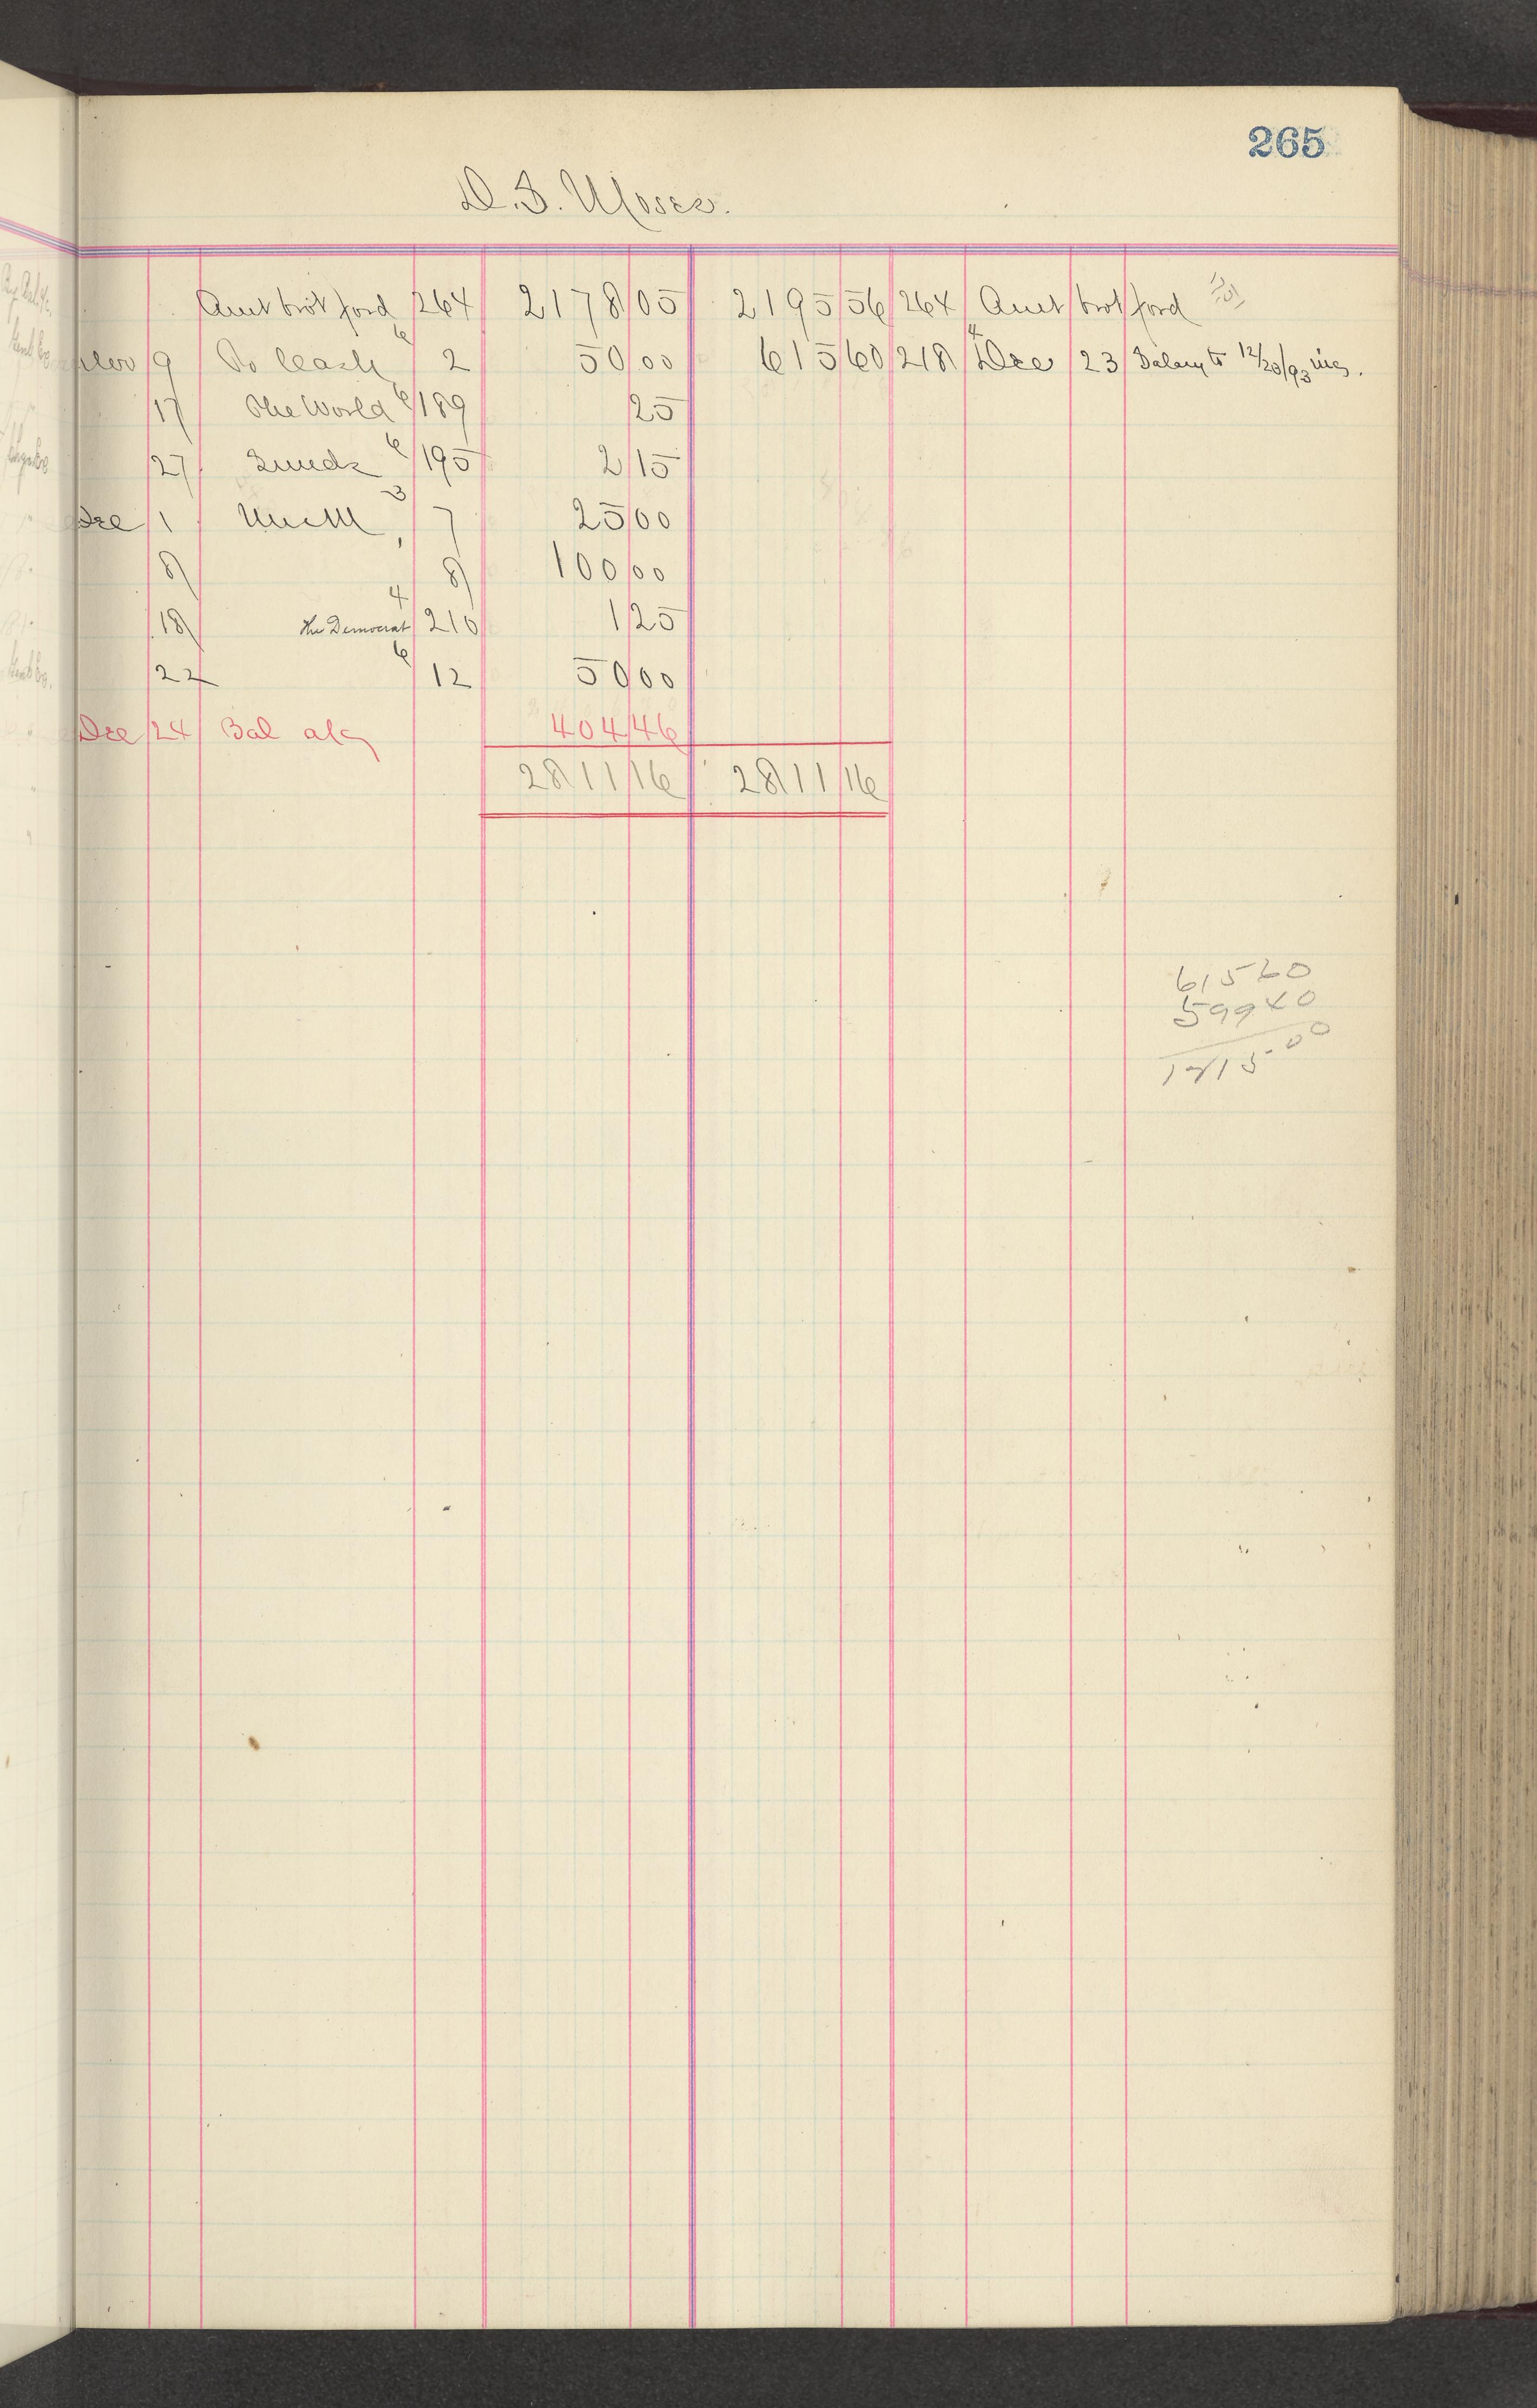 265
D. S. Moses.
Amt brot ford 264 2178 05 2195 56 264 Amt brot ford
Nov 9 To Cash 6 2 50 00 615 60 218 4 Dec 23 Salary to 12/20/93 inc.
17 The World 6 189 25
27 Sunds 6 195 2 15
Dec 1 3 7 25 00
8 8 100 00
18 The Democrat 4 210 1 25
22 6 12 50 00
Dec 24 Bal a/c 404 46
2811 16 2811 16
61560
59940
121500